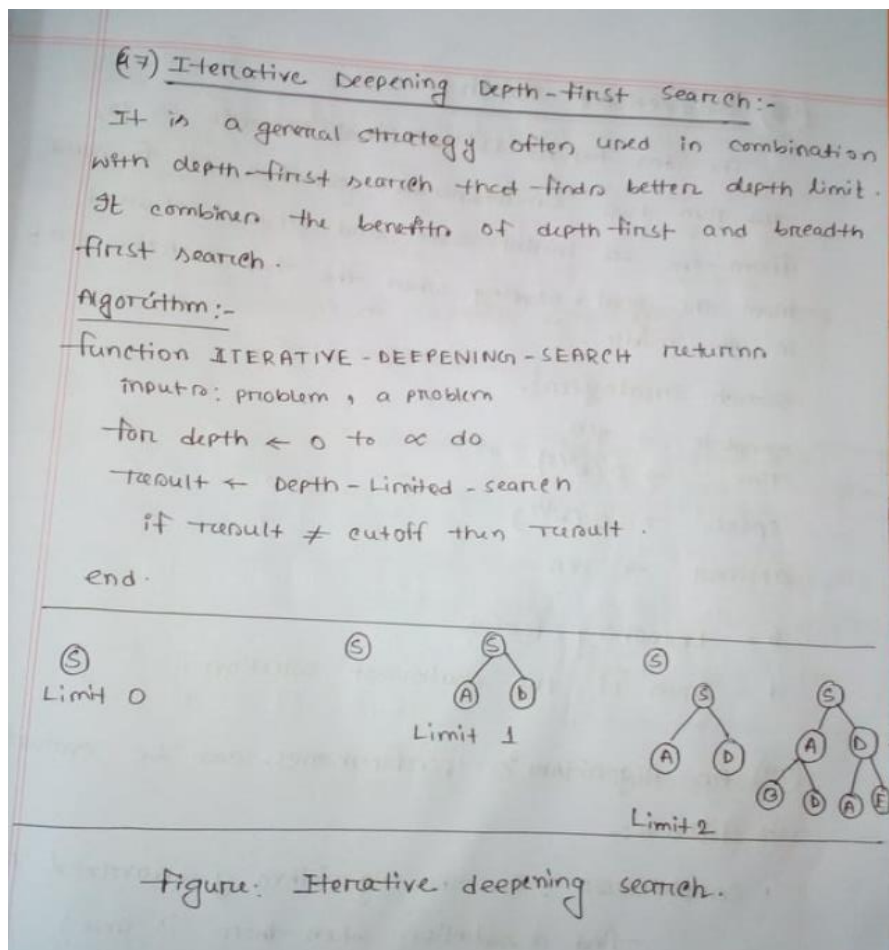 (47) Iterative Deepening Depth-first Search:-
It is a general strategy often used in combination
with depth-first search that finds better depth limit.
It combines the benefits of depth first and breadth
first search.
Algorithm:-
function ITERATIVE-DEEPENING-SEARCH returns
inputs: problem, a problem
for depth ← 0 to ∝ do
result ← Depth-Limited-search
if result ≠ cutoff then result.
end.
S
Limit 0
S
S
A D
Limit 1
S
S
A D
S
A D
B D A E
Limit 2
Figure: Iterative deepening search.